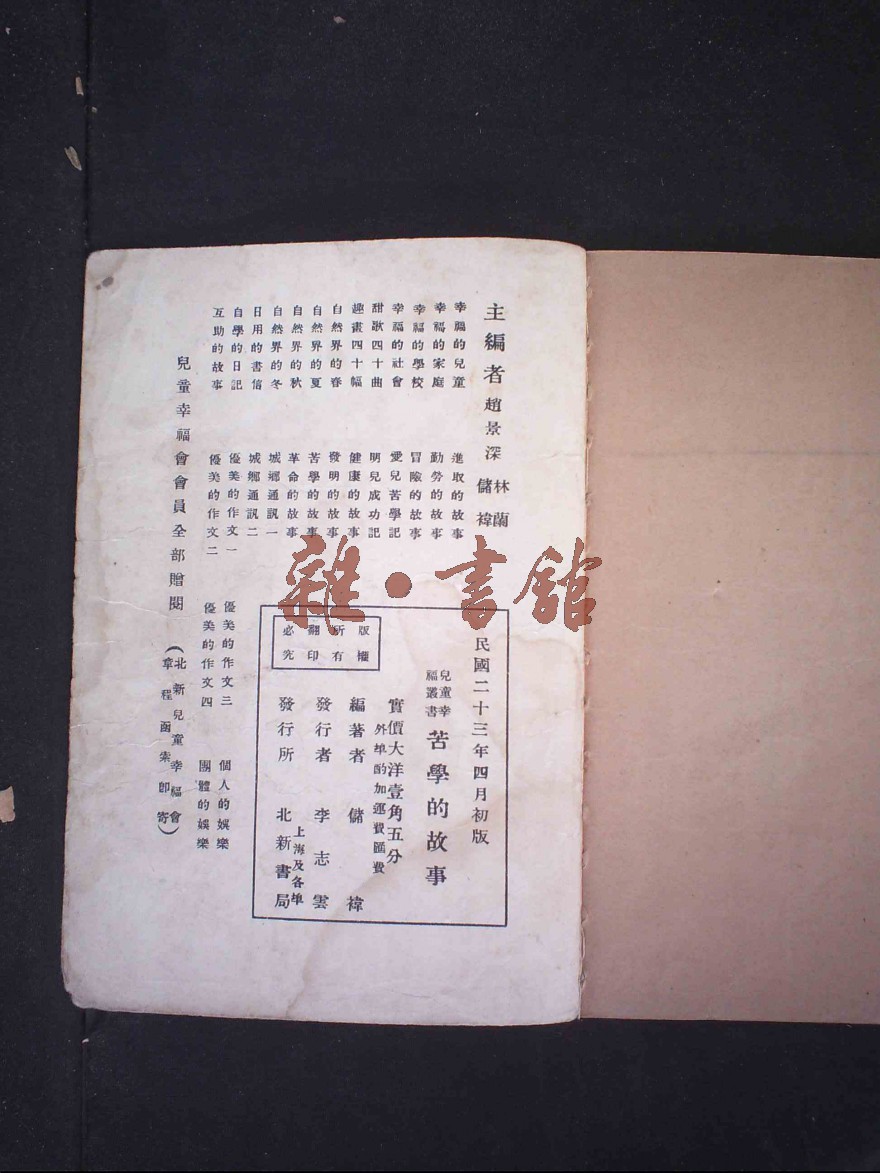 主編者 趙景深 林蘭 儲褘
幸福的兒童
幸福的家庭
幸福的學校
幸福的社會
甜歌四十曲
趣畫四十幅
自然界的春
自然界的夏
自然界的秋
自然界的冬
日用的書信
自學的日記
互助的故事
進取的故事
勤勞的故事
冒險的故事
愛兒苦學記
明兒成功記
健康的故事
發明的故事
苦學的故事
革命的故事
城鄉通訊一
城鄉通訊二
優美的作文一
優美的作文二
優美的作文三
優美的作文四
個人的娛樂
團體的娛樂
兒童幸福會會員全部贈閱
(北新兒童幸福會
章程函索即寄)
民國二十三年四月初版
兒童幸福叢書 苦學的故事
實價大洋壹角五分
外埠酌加運費匯費
編著者 儲褘
發行者 李志雲
發行所 上海及各埠 北新書局
版權
所有
翻印
必究
雜·書館